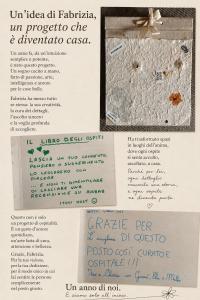 Un'idea di Fabrizia,
un progetto che
è diventato casa.
Un anno fa, da un'intuizione
semplice e potente,
è nato questo progetto.
Un sogno cucito a mano,
fatto di passione, arte,
intelligenza e amore
per le cose belle.
Fabrizia ha messo tutto
se stessa: la sua creatività,
la cura dei dettagli,
l'ascolto sincero
e la voglia profonda
di accogliere.
Ha trasformato spazi
in luoghi dell'anima,
dove ogni ospite
si sente accolto,
ascoltato, a casa.
Perché per lei,
ogni dettaglio
racconta una storia,
e ogni ospite
ne diventa parte
IL LIBRO DEGLI OSPITI
LASCIA UN TUO COMMENTO,
PENSIERO O SUGGERIMENTO
LO LEGGEREMO CON
PIACERE
... E NON TI DIMENTICARE
DI LASCIARE UNA
RECENSIONE SU AIRBNB
Questo non è solo
un progetto di ospitalità.
È un gesto d'amore
quotidiano,
un'arte fatta di cura,
attenzione e bellezza.
Grazie, Fabrizia.
Per la tua visione,
per la tua dedizione,
per il modo unico in cui
fai sentire le persone
semplicemente
nel posto giusto.
GRAZIE PER
DI QUESTO
POSTO COSÌ CURATO E
OSPITALE !!!
Un anno di noi.
E siamo solo all'inizio.